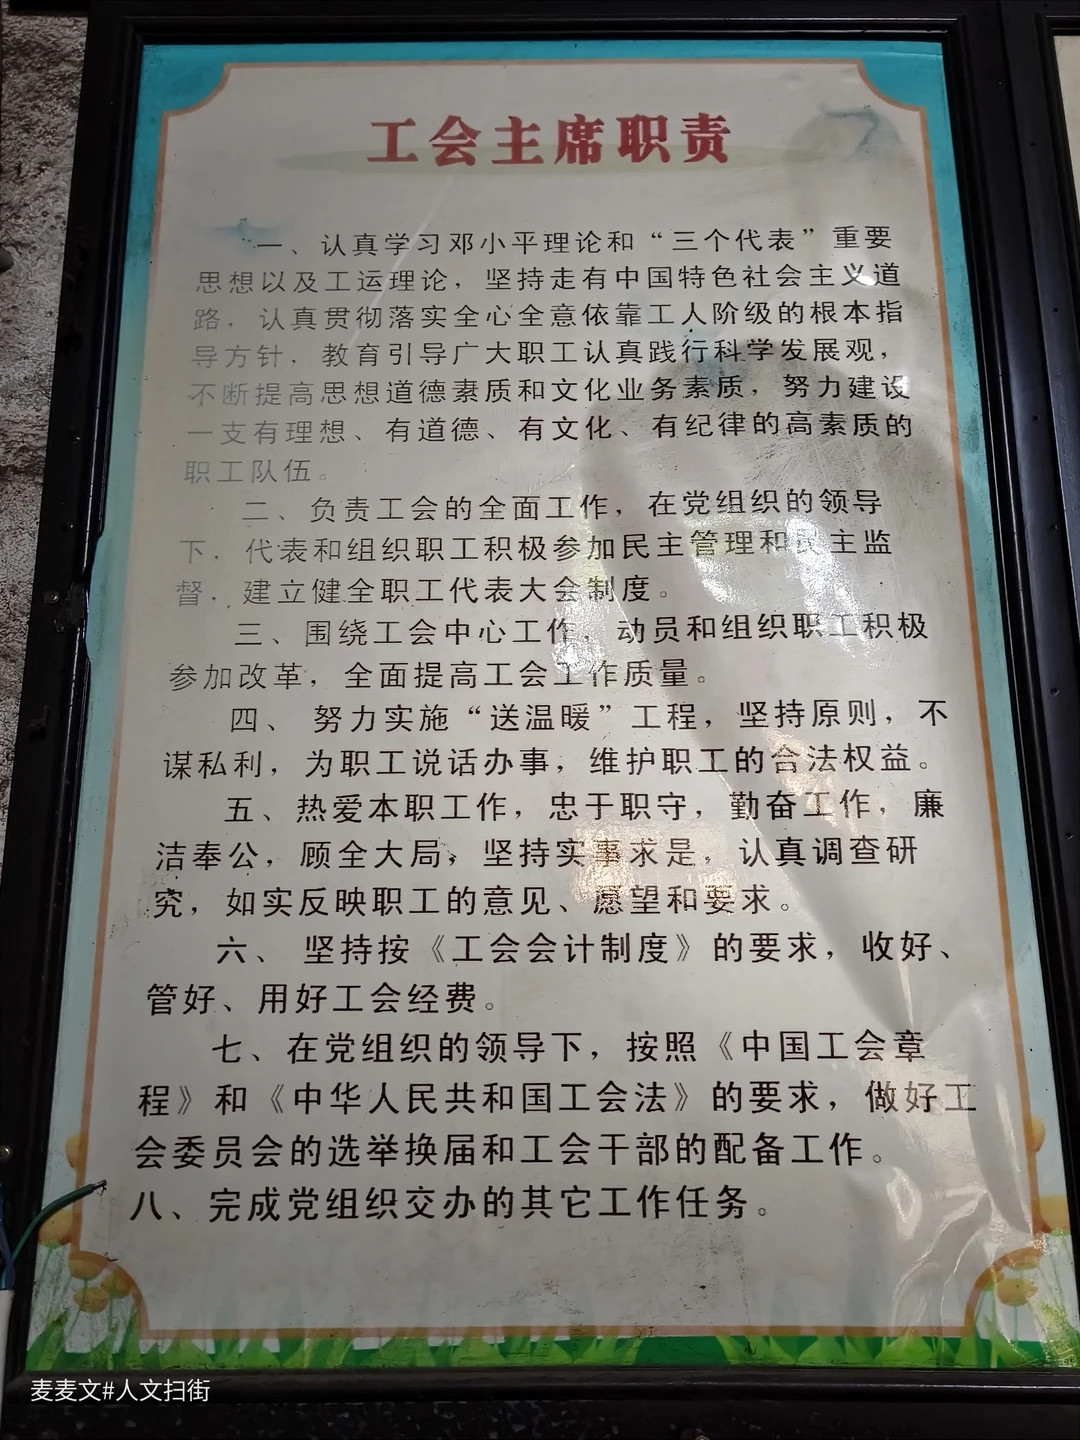 工会主席职责
一、认真学习邓小平理论和“三个代表”重要
思想以及工运理论，坚持走有中国特色社会主义道
路，认真贯彻落实全心全意依靠工人阶级的根本指
导方针，教育引导广大职工认真践行科学发展观，
不断提高思想道德素质和文化业务素质，努力建设
一支有理想、有道德、有文化、有纪律的高素质的
职工队伍。
二、负责工会的全面工作，在党组织的领导
下，代表和组织职工积极参加民主管理和民主监
督，建立健全职工代表大会制度。
三、围绕工会中心工作，动员和组织职工积极
参加改革，全面提高工会工作质量。
四、努力实施“送温暖”工程，坚持原则，不
谋私利，为职工说话办事，维护职工的合法权益。
五、热爱本职工作，忠于职守，勤奋工作，廉
洁奉公，顾全大局，坚持实事求是，认真调查研
究，如实反映职工的意见、愿望和要求。
六、坚持按《工会会计制度》的要求，收好、
管好、用好工会经费。
七、在党组织的领导下，按照《中国工会章
程》和《中华人民共和国工会法》的要求，做好工
会委员会的选举换届和工会干部的配备工作。
八、完成党组织交办的其它工作任务。
麦麦文#人文扫街